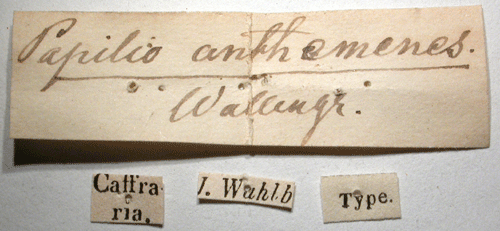 Papilio anthemenes.
Wallengr.
Caffra-
ria.
J. Wahlb
Type.